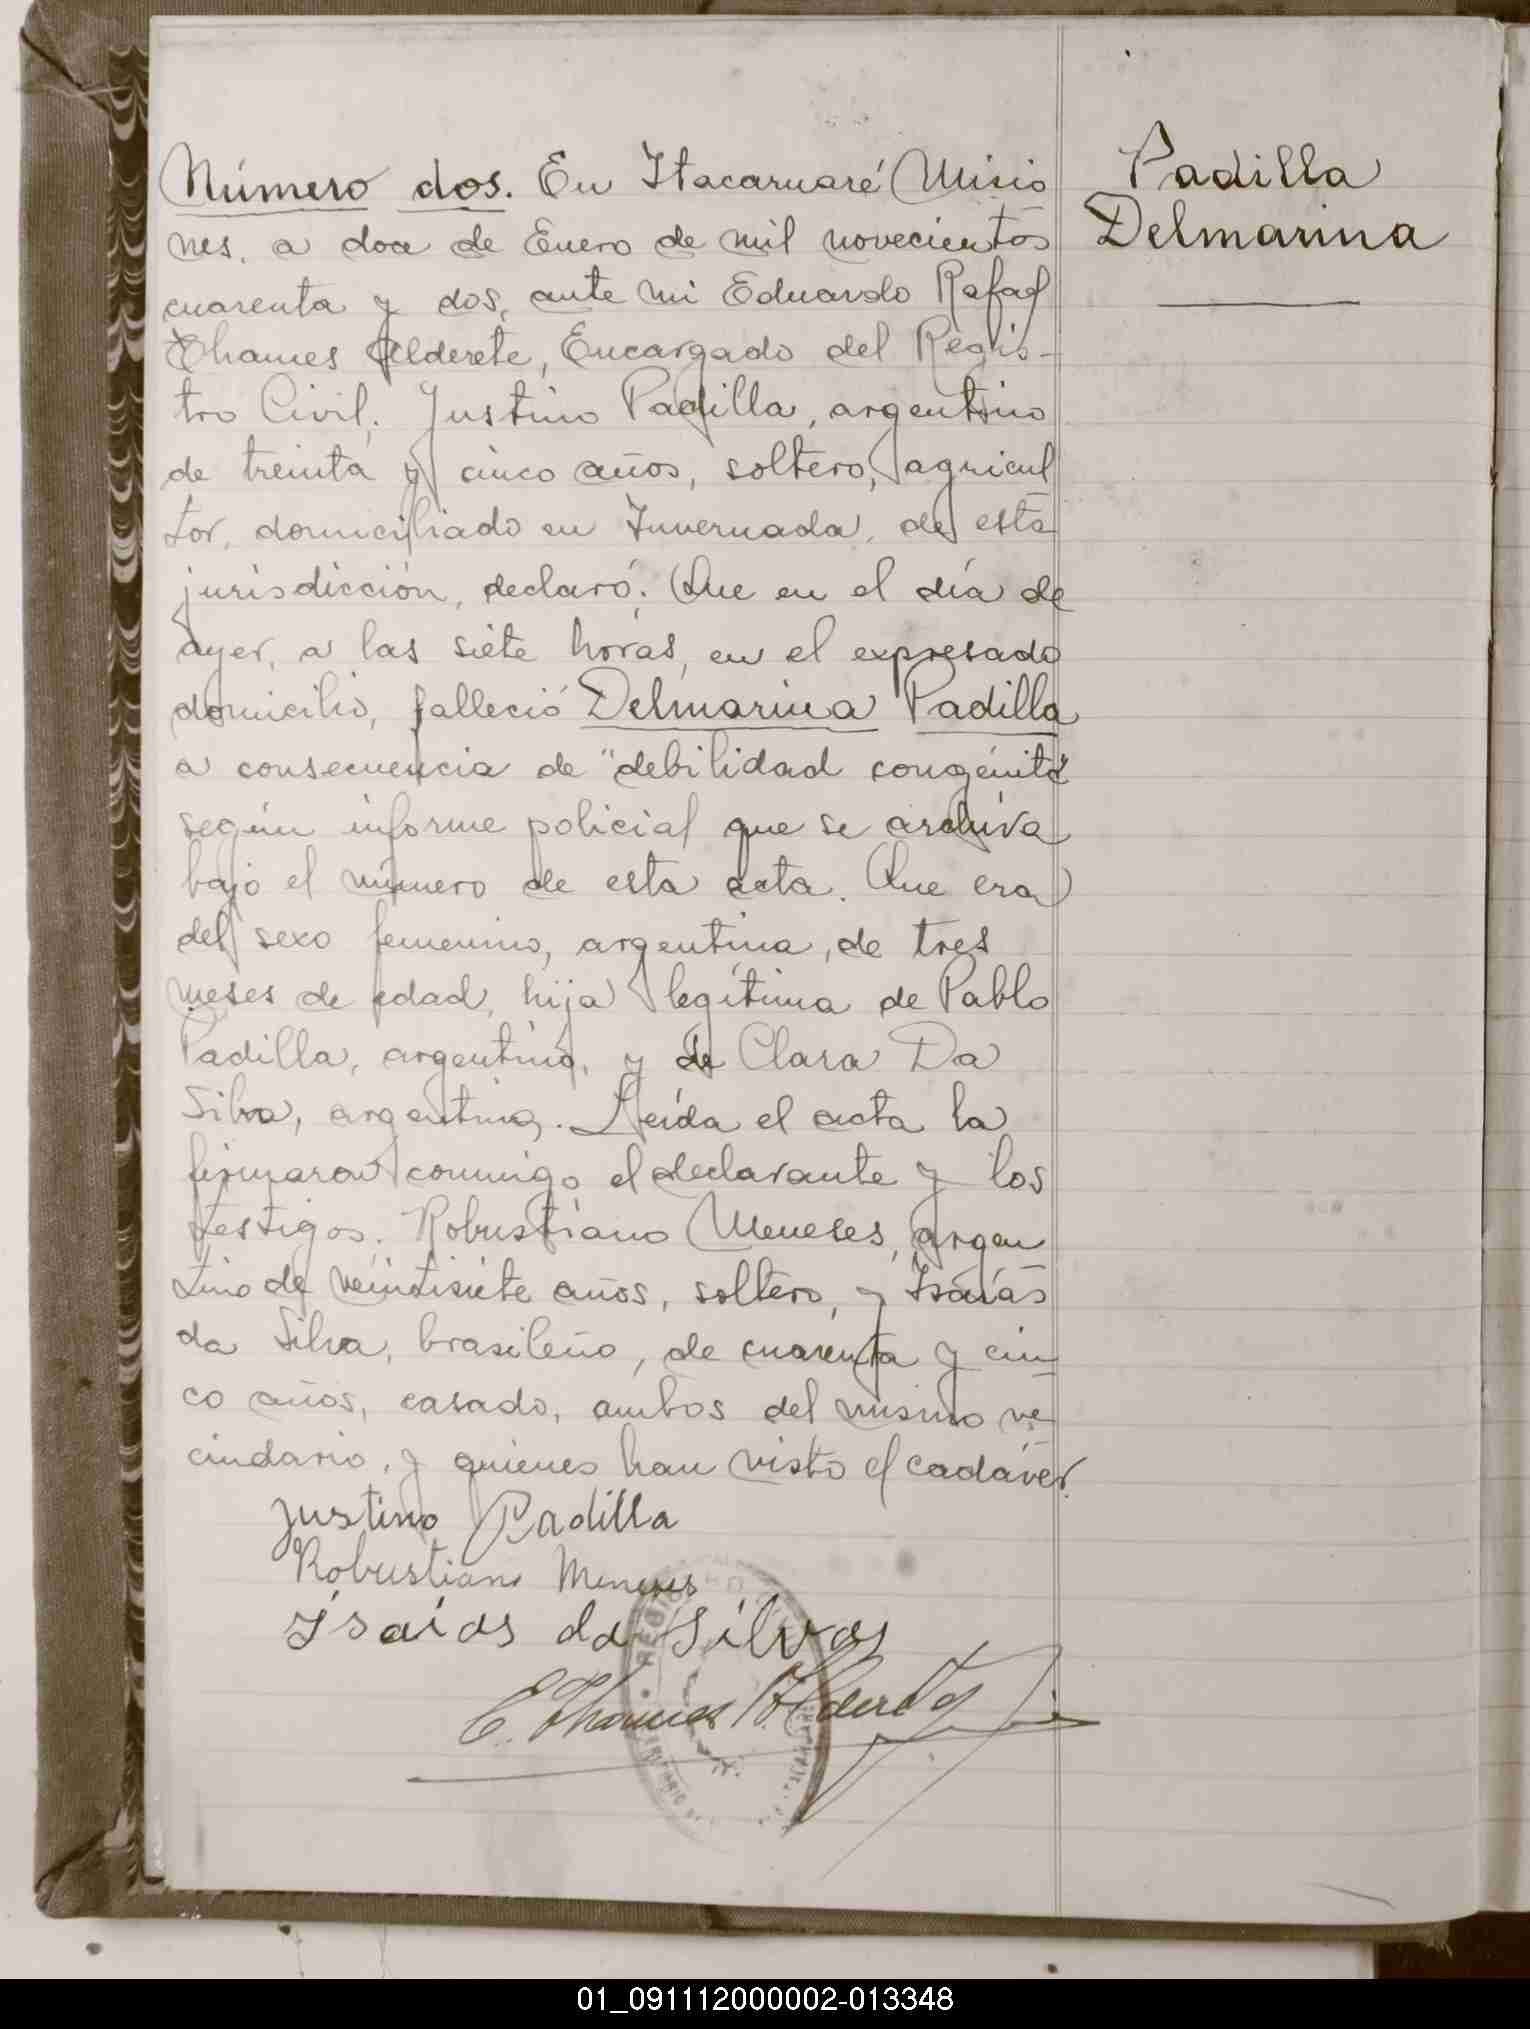 Número dos. En Itacaruaré Misio
nes, a doce de Enero de mil novecientos
cuarenta y dos, ante mi Eduardo Rafael
Thames Alderete, Encargado del Regis-
tro Civil; Justino Padilla, argentino
de treinta y cinco años, soltero, agricul
tor, domiciliado en Invernada, de esta
jurisdicción, declaró: Que en el día de
ayer, a las siete horas, en el expresado
domicilio, falleció Delmarina Padilla
a consecuencia de "debilidad congénita"
según informe policial que se archiva
bajo el número de esta acta. Que era
del sexo femenino, argentina, de tres
meses de edad, hija legítima de Pablo
Padilla, argentino, y de Clara Da
Silva, argentina. Leída el acta la
firmaron conmigo el declarante y los
testigos: Robustiano Meneses, argen
tino de veintisiete años, soltero, y Isaías
da Silva, brasileño, de cuarenta y cin
co años, casado, ambos del mismo ve
cindario, y quienes han visto el cadáver.
Justino Padilla
Robustiano Meneses
Isaias da Silva
E. Thames Alderete
Padilla
Delmarina
01_091112000002-013348